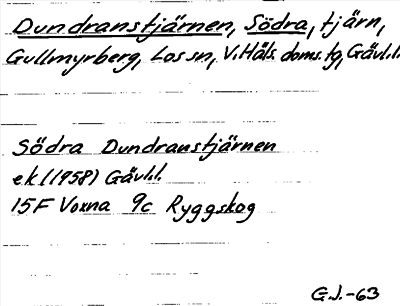 Dundranstjärnen, Södra, tjärn,
Gullmyrberg, Los sn, V.Häls. doms. tg, Gävl.l.
Södra Dundranstjärnen
ek (1958) Gävl.l.
15F Voxna 9c Ryggskog
G.J.-63